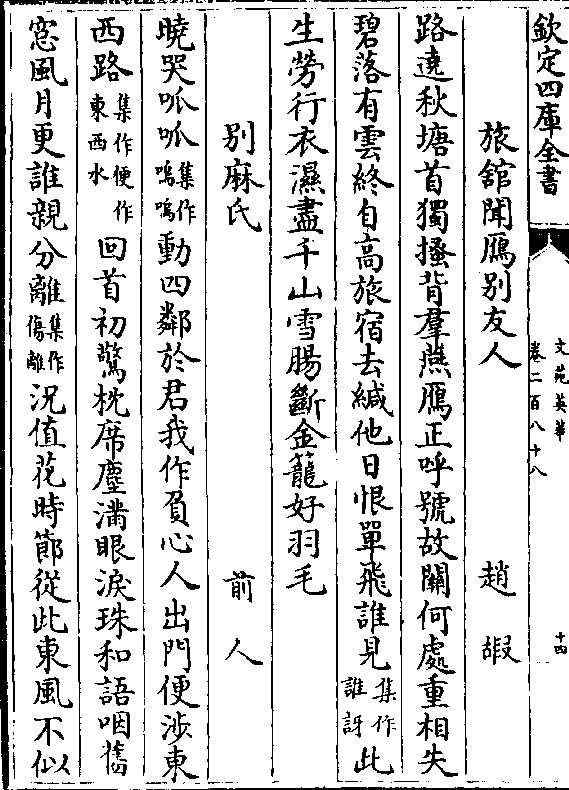 欽定四庫全書
文苑英華
卷二百八十八
十四
旅舘聞鴈别友人 趙嘏
路遶秋塘首獨搔背羣燕鴈正呼號故關何處重相失
碧落有雲終自高旅宿去緘他日恨單飛誰見集作誰訝此
生勞行衣濕盡千山雪腸斷金籠好羽毛
别麻氏 前人
曉哭呱呱集作嗚嗚動四鄰於君我作負心人出門便涉東
西路集作便作東西水回首初驚枕席塵滿眼淚珠和語咽舊
窓風月更誰親分離集作傷離況值花時節從此東風不似